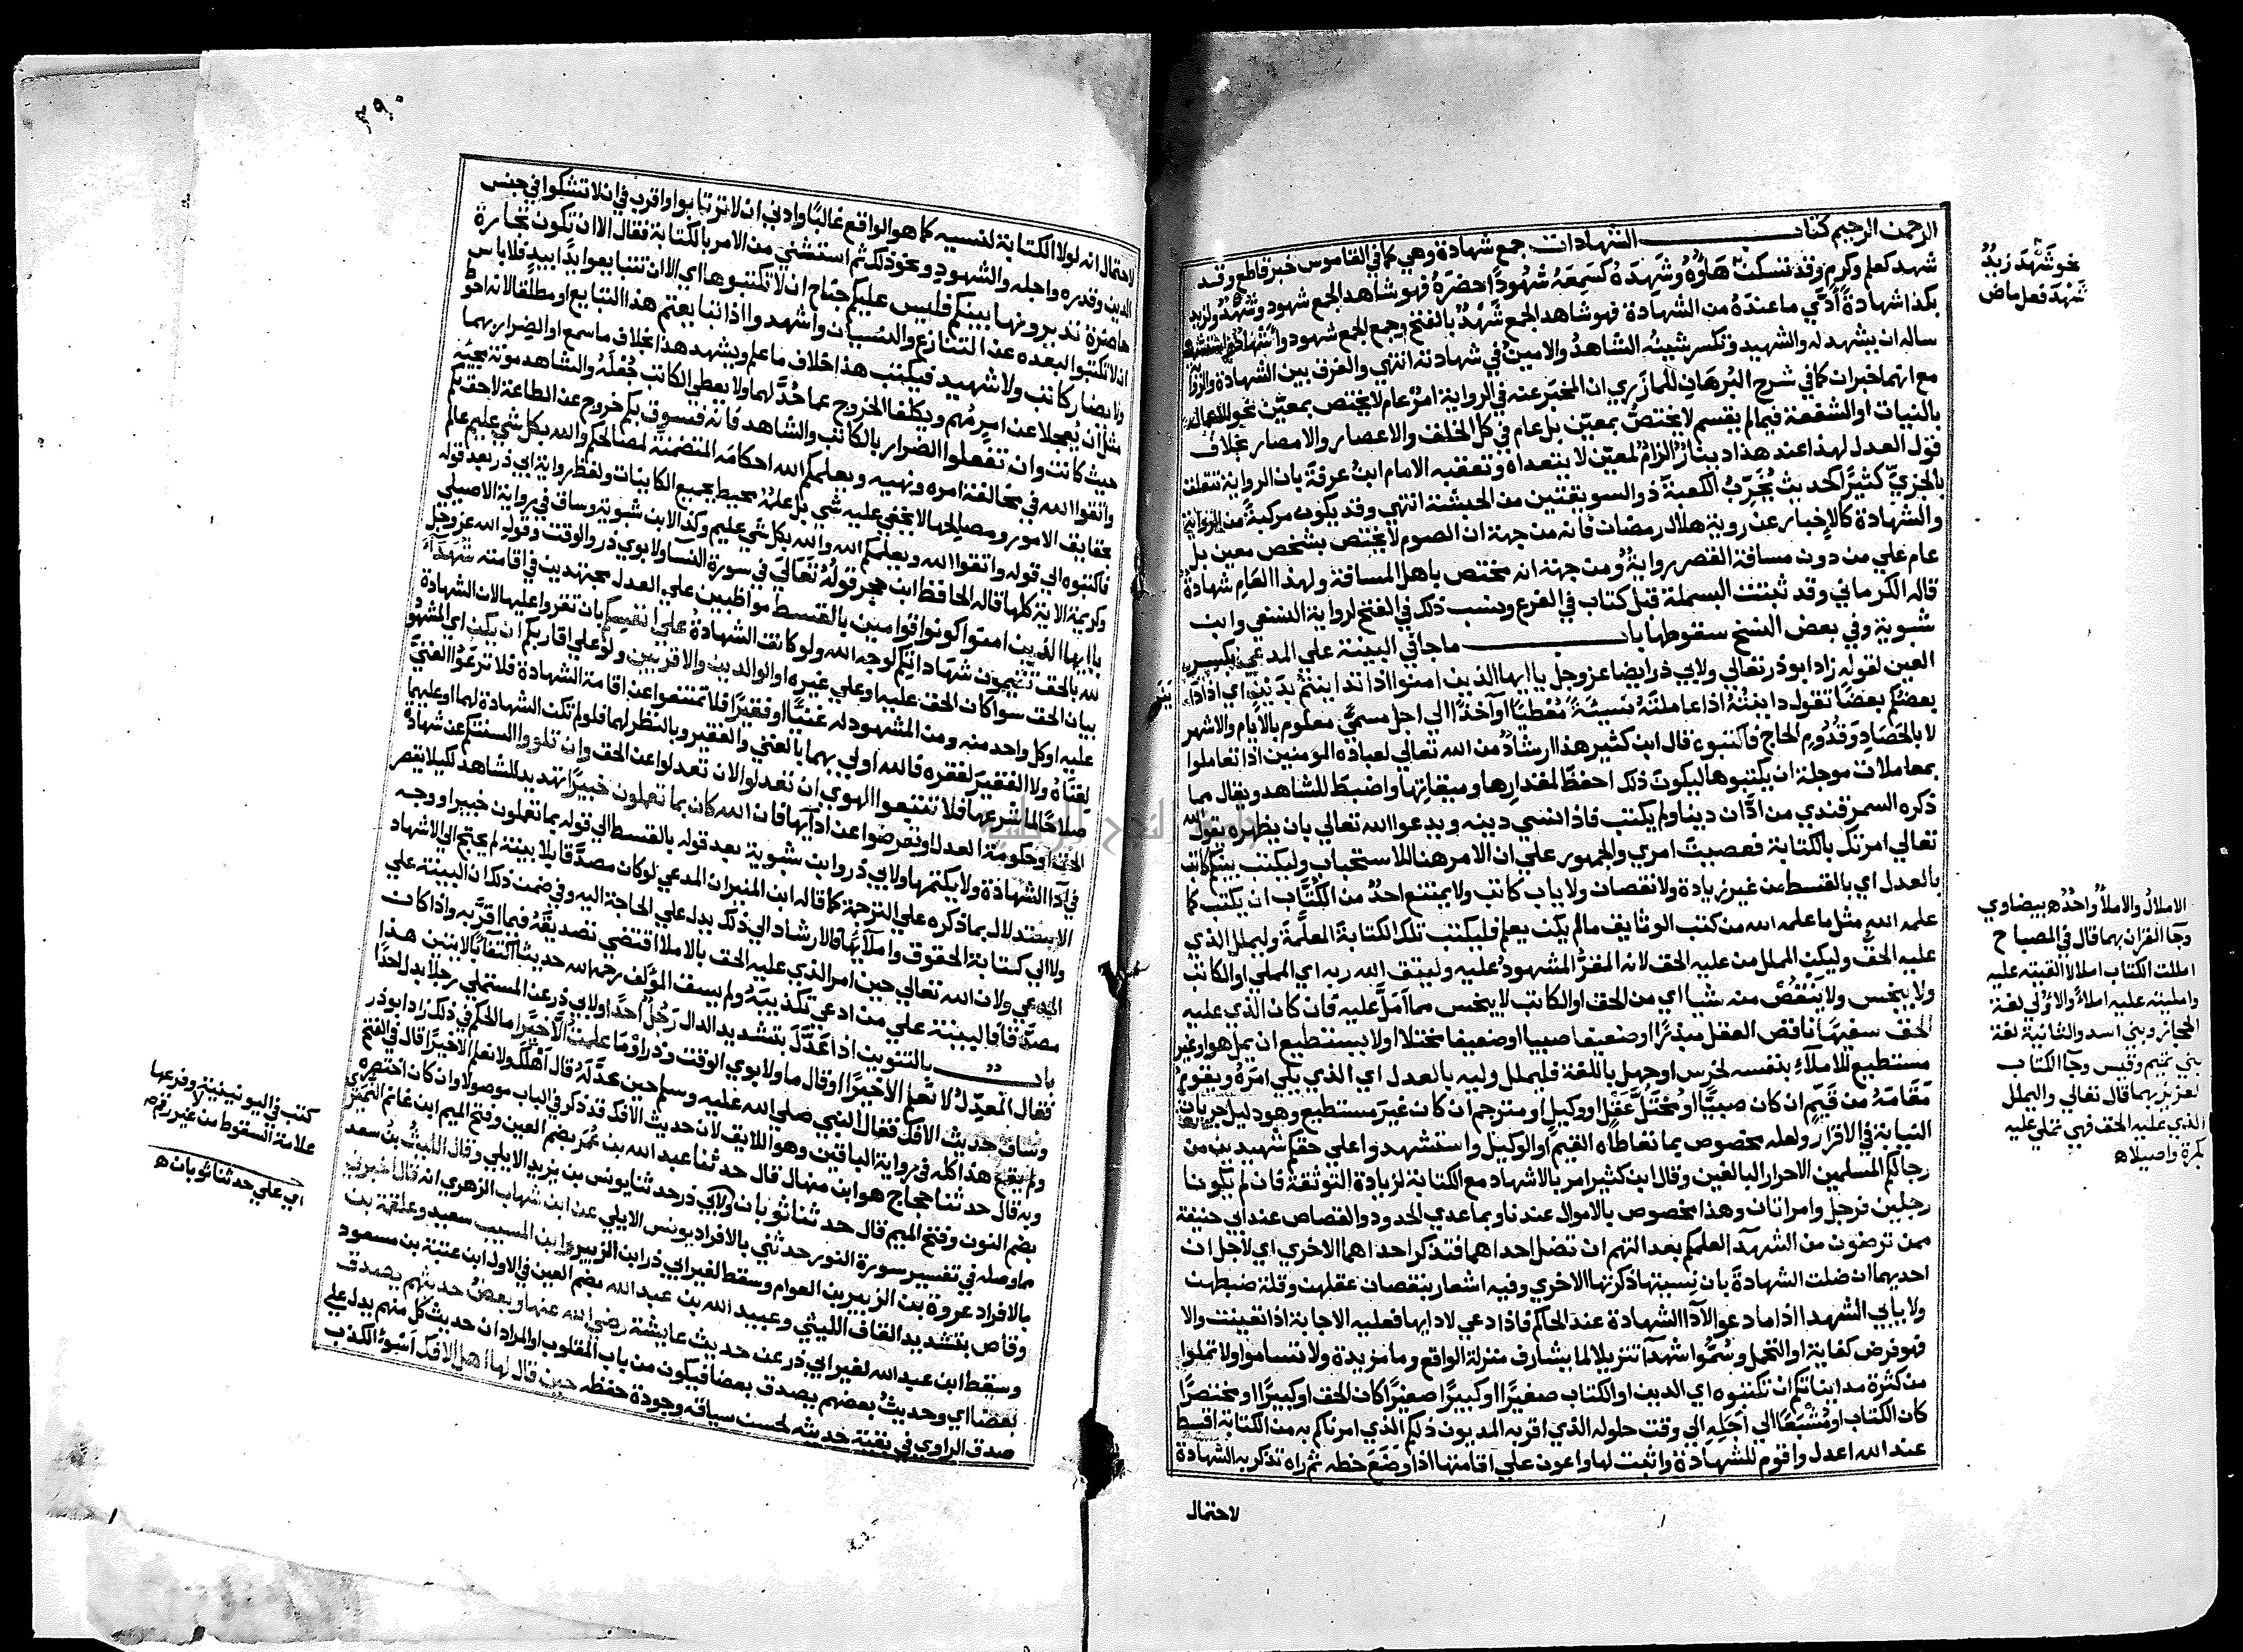 الرحمن الرحيم كتاب الشهادات جمع شهادة وهي كما في القاموس خبر قاطع وقد
شهد كعلم وكرم وقد تسكن هاؤه وشهده كسمعه شهودا حضره فهو شاهد الجمع شهود وشهد ولزيد
بكذا شهادة أدي ما عنده من الشهادة فهو شاهد الجمع شهد بالفتح وجمع الجمع شهود وأشهاد واستشهده
ساله ان يشهد له والشهيد وتكسر شينه الشاهد والامين في شهادته انتهي والفرق بين الشهادة والرواية
مع انهما خبران كما في شرح البرهان للمازري ان المخبر عنه في الرواية امر عام لا يختص بمعين نحو الاعمال
بالنيات او الشفعة فيما لم يقسم لا يختص بمعين بل عام في كل الخلف والاعصار والامصار بخلاف
قول العدل لهذا عند هذا دينار الزام لمعين لا يتعداه وتعقبه الامام ابن عرفة بان الرواية تتعلق
بالجزي كثيرا كحديث يخرب الكعبة ذو السويقتين من الحبشة انتهي وقد يكون مركبة من الرواية
والشهادة كالإخبار عن روية هلال رمضان فانه من جهة ان الصوم لا يختص بشخص معين بل
عام علي من دون مسافة القصر رواية ومن جهة انه مختص باهل المسافة ولهذا العام شهادة
قاله الكرماني وقد ثبتت البسملة قبل كتاب في الفرع ونسب ذلك في الفتح لرواية النسفي وابن
شبوية وفي بعض النسخ سقوطها باب ما جا في البينة علي المدعي بكسر
العين لقوله زاد ابو ذر تعالي ولابي ذر ايضا عز وجل يا ايها الذين امنوا اذا تداينتم بدين اي اذا داين
بعضكم بعضا تقول داينته اذا عاملته نسيئة معطيا او آخذا الي اجل مسمي معلوم بالايام والاشهر
لا بالحصاد وقدوم الحاج فاكتبوه قال ابن كثير هذا ارشاد من الله تعالي لعباده المومنين اذا تعاملوا
بمعاملات موجلة ان يكتبوها ليكون ذلك احفظ لمقدارها وميقاتها واضبط للشاهد ويقال مما
ذكره السمرقندي من ادّان دينا ولم يكتب فاذا نسي دينه ويدعوا الله تعالي بان يظهره يقول الله
تعالي امرتك بالكتابة فعصيت امري والجمهور علي ان الامر هنا للاستحباب وليكتب بينكم كاتب
بالعدل اي بالقسط من غير زيادة ولا نقصان ولا ياب كاتب ولا يمتنع احد من الكتاب ان يكتب كما
علمه الله مثل ما علمه الله من كتب الوثايق ما لم يكن يعلم فليكتب تلك الكتابة المعلمة وليملل الذي
عليه الحق وليكن المملل من عليه الحق لانه المقر المشهود عليه وليتق الله ربه اي المملي او الكاتب
ولا يبخس ولا ينقص منه شيا اي من الحق او الكاتب لا يبخس مما أمل عليه فان كان الذي عليه
الحق سفيها ناقص العقل مبذرا او ضعيفا صبيا او ضعيفا مختلا او لا يستطيع ان يمل هو او غير
مستطيع للاملاء بنفسه لخرس او جهل باللغة فليملل وليه بالعدل اي الذي يلي امره ويقوم
مقامه من قيم ان كان صبيا او مختل عقل او وكيل او مترجم ان كان غير مستطيع وهو دليل جريان
النيابة في الاقرار ولعله مخصوص بما تعاطاه القيم او الوكيل واستشهدوا علي حقكم شهيدين من
رجالكم المسلمين الاحرار البالغين وقال ابن كثير امر بالاشهاد مع الكتابة لزيادة التوثقة فان لم يكونا
رجلين فرجل وامراتان وهذا مخصوص بالاموال عندنا وبما عدي الحدود والقصاص عند ابي حنيفة
ممن ترضون من الشهدآ لعلمكم بعدالتهم ان تضل احداهما فتذكر احداهما الاخري اي لاجل ان
احديهما ان ضلت الشهادة بان نسيتها ذكرتها الاخري وفيه اشعار بنقصان عقلهن وقلة ضبطهن
ولا يابي الشهدا اذا ما دعوا لآدا الشهادة عند الحاكم فاذا دعي لادايها فعليه الاجابة اذا تعينت والا
فهو فرض كفاية او التحمل وسموا شهدآ تنزيلا لما يشارف منزلة الواقع وما مزيدة ولا تساموا ولا تملوا
من كثرة مدايناتكم ان تكتبوه اي الدين او الكتاب صغيرا او كبيرا صغيرا كان الحق او كبيرا او مختصرا
كان الكتاب او مشبعا الي اجله الي وقت حلوله الذي اقر به المديون ذلكم الذي امرناكم به من الكتابة اقسط
عند الله اعدل واقوم للشهادة واثبت لها واعون علي اقامتها اذا وضع خطه ثم راه تذكر به الشهادة
لاحتمال
نحو شهد زيد
شهد فعل ماض
الاملال والاملا واحد ه بيضاوي
وجا القران بهما قال في المصباح
امللت الكتاب املالا القيته عليه
وامليته عليه املاء والاولي لغة
الحجاز وبني اسد والثانية لغة
بني تميم وقيس وجا الكتاب
العزيز بهما قال تعالي وليملل
الذي عليه الحق فهي تملي عليه
بكرة واصيلا ه
٣٩٠
لاحتمال انه لولا الكتابة لنسيه كما هو الواقع غالبا وادني ان لا ترتابوا واقرب في ان لا تشكوا في جنس
الدين وقدره واجله والشهود ونحو ذلك ثم استثني من الامر بالكتابة فقال الا ان تكون تجارة
حاضرة تديرونها بينكم فليس عليكم جناح ان لا تكتبوها اي الا ان تتبايعوا يدا بيد فلا باس
ان لا تكتبوا لبعده عن التنازع والنسيان واشهدوا اذا تبايعتم هذا التبايع او مطلقا لانه احوط
ولا يضار كاتب ولا شهيد فيكتب هذا خلاف ما علم ويشهد هذا بخلاف ما سمع او الضرار بهما
مثل ان يعجلا عن امر مهم ويكلفا الخروج عما حد لهما ولا يعطي الكاتب جعله والشاهد مونة مجيئه
حيث كانت وان تفعلوا الضرار بالكاتب والشاهد فانه فسوق بكم خروج عن الطاعة لاحق بكم
واتقوا الله في مخالفة امره ونهيه ويعلمكم الله احكامه المتضمنة لمصالحكم والله بكل شي عليم عالم
بحقايق الامور ومصالحها لا يخفي عليه شي بل علمه محيط بجميع الكاينات ولفظ رواية ابي ذر بعد قوله
فاكتبوه الي قوله واتقوا الله ويعلمكم الله والله بكل شي عليم وكذا لابن شبوية وساق في رواية الاصيلي
وكريمة الاية كلها قاله الحافظ ابن حجر قوله تعالي في سورة النسآ ولابوي ذر والوقت وقول الله عز وجل
يا ايها الذين امنوا كونوا قوامين بالقسط مواظبين علي العدل مجتهدين في اقامته شهدآء
لله بالحق تقيمون شهاداتكم لوجه الله ولو كانت الشهادة علي انفسكم بان تقروا عليها لان الشهادة
بيان الحق سوا كان الحق عليه او علي غيره او الوالدين والاقربين ولو علي اقاربكم ان يكن اي المشهود
عليه او كل واحد منه ومن المشهود له غنيا او فقيرا فلا تمتنعوا عن اقامة الشهادة فلا ترعوا الغني
لغناه ولا الفقير لفقره فالله اولي بهما بالغني والفقير وبالنظر لهما فلو لم تكن الشهادة لهما او عليهما
صلاحا لما شرعها فلا تتبعوا الهوي ان تعدلوا لان تعدلوا عن الحق وان تلووا السنتكم عن شهادة
الحق او حكومة العدل او تعرضوا عن ادآيها فان الله كان بما تعملون خبيرا تهديد للشاهد لكيلا يقصر
في ادآ الشهادة ولا يكتمها ولابي ذر وابن شبوية بعد قوله بالقسط الي قوله بما تعملون خبيرا ووجه
الاستدلال بما ذكره علي الترجمة كما قاله ابن المنير ان المدعي لو كان مصدقا بلا بينة لم يحتج الي الاشهاد
ولا الي كتابة الحقوق واملآيها فالارشاد الي ذلك يدل علي الحاجة اليه وفي ضمن ذلك ان البينة علي
المدعي ولان الله تعالي حين امر الذي عليه الحق بالاملا اقتضي تصديقه فيما اقر به واذا كان
مصدقا فالبينة علي من ادعي تكذيبه ولم يسق المؤلف رحمه الله حديثا اكتفآ بالايتين هذا
باب بالتنوين اذا عدل بتشديد الدال رجل احدا ولابي ذر عن المستملي رجلا بدل احدا
فقال المعدل لا نعلم الا خيرا او قال ما ولابوي الوقت وذر او ما علمت الا خيرا ما الحكم في ذلك زاد ابو ذر
وساق حديث الافك فقال النبي صلي الله عليه وسلم حين عدله قال اهلك ولا نعلم الا خيرا قال في الفتح
ولم يقع هذا كله في رواية الباقين وهو اللايق لان حديث الافك قد ذكر في الباب موصولا وان كان اختصره
وبه قال حدثنا حجاج هو ابن منهال قال حدثنا عبد الله بن عمر بضم العين وفتح الميم ابن غانم النميري
بضم النون وفتح الميم قال حدثنا ثوبان ولابي ذر حدثنا يونس بن يزيد الايلي وقال الليث بن سعد
مما وصله في تفسير سورة النور حدثني بالافراد يونس الايلي عن ابن شهاب الزهري انه قال اخبرني
بالافراد عروة بن الزبير بن العوام وسقط لغير ابي ذر ابن الزبير وابن المسيب سعيد وعلقمة بن
وقاص بتشديد القاف الليثي وعبيد الله بن عبد الله بضم العين في الاول ابن عتبة بن مسعود
وسقط ابن عبد الله لغير ابي ذر عن حديث عايشة رضي الله عنها وبعض حديثهم يصدق
بعضا اي وحديث بعضهم يصدق بعضا فيكون من باب المقلوب او المراد ان حديث كل منهم يدل علي
صدق الراوي في بقية حديثه لحسن سياقه وجودة حفظه حين قال لها اهل الافك اسوء الكذب
كتب في اليونينية وفرعها
علامة السقوط من غير رقم ه
اي علي حدثنا ثوبان ه